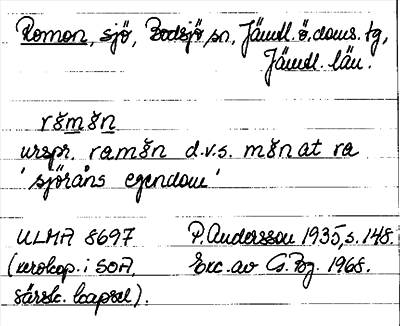 Romon, sjö, Bodsjö sn, Jämtl. ö. doms. tg,
Jämtl. län.
rŏmŏn
urspr. ramŏn d.v.s. mŏnat ra
'sjöråns egendom'
ULMA 8697 P. Andersson 1935, s. 148.
(xerokop. i SOA, Exc. av G. Bg. 1968.
särsk. kapsel).